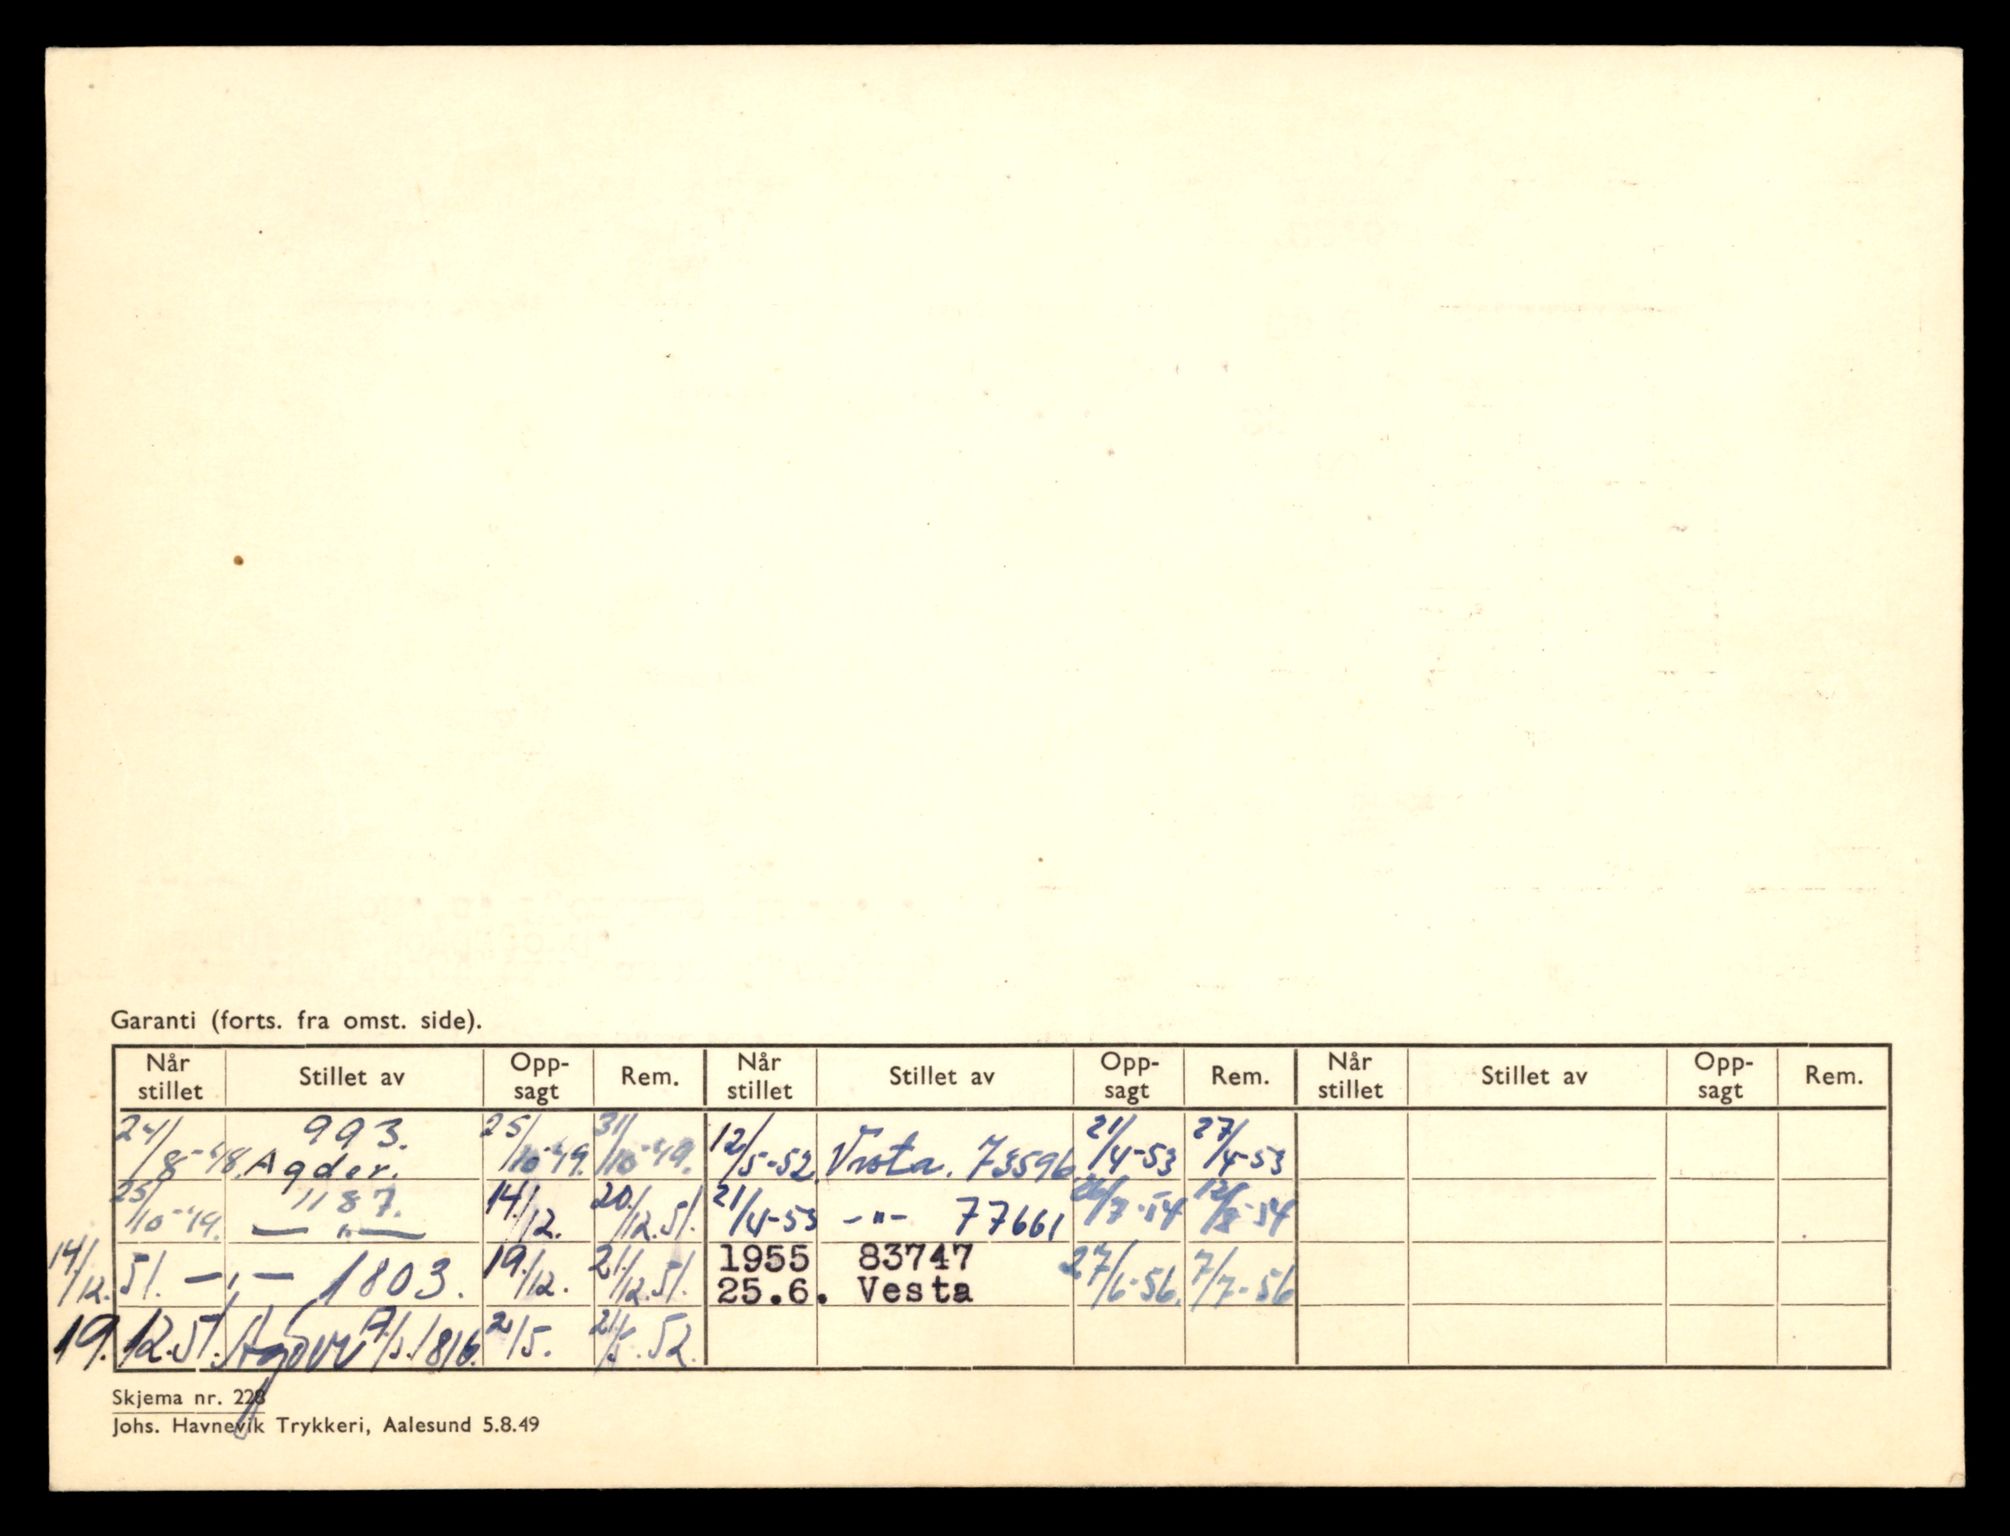 Garanti (forts. fra omst. side).
Når stillet | Stillet av | Opp-sagt | Rem. | Når stillet | Stillet av | Opp-sagt | Rem. | Når stillet | Stillet av | Opp-sagt | Rem.
24/8-48. | 993. Agder. | 25/10-49. | 31/10-49. | 12/5-52. | Vesta. 73596 | 21/4-53 | 27/4-53
25/10-49. | 1187. —"— | 14/12. | 20./12.51. | 21/4-53 | -"- 77661 | 26/7-54 | 12/8-54
14/12.51. | —"— 1803. | 19./12. | 21./12.51. | 1955 25.6. | 83747 Vesta | 27/6-56. | 7/7-56
19.12.51. | A/S. 1816. | 2/5. | 21/5.52.
Skjema nr. 228
Johs. Havnevik Trykkeri, Aalesund 5.8.49